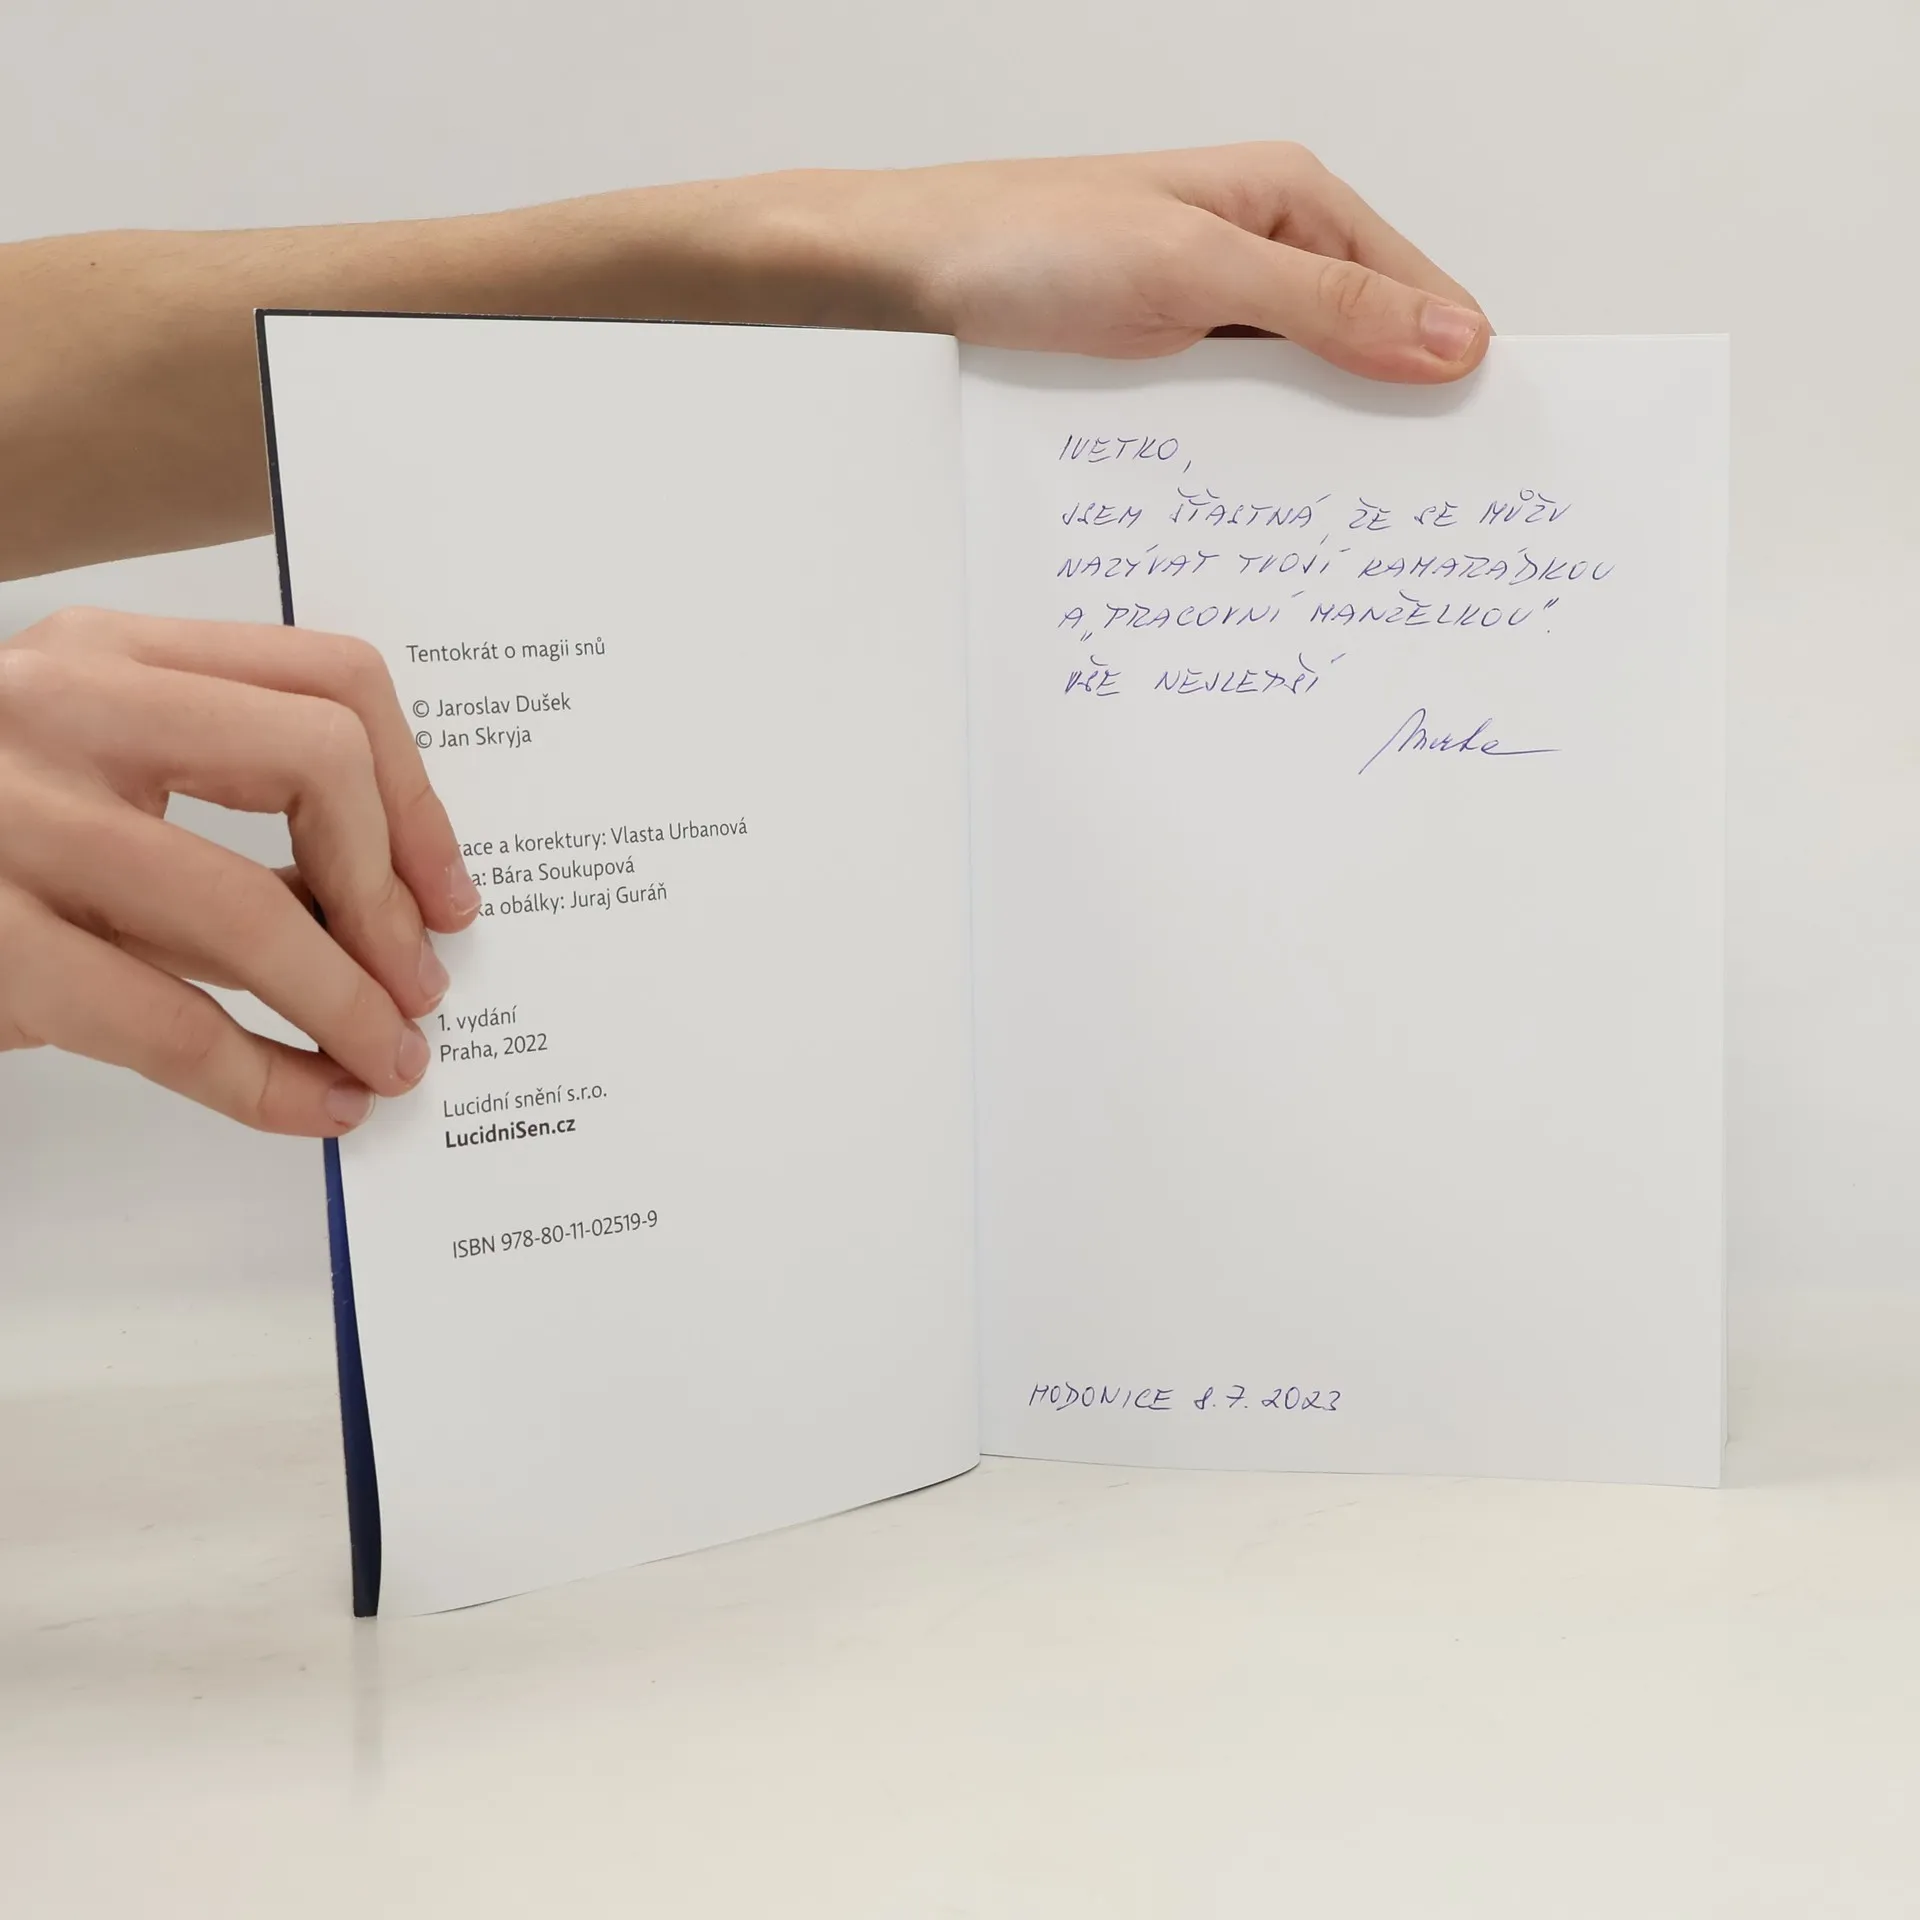 Tentokrát o magii snů
© Jaroslav Dušek
© Jan Skryja
a korektury: Vlasta Urbanová
Bára Soukupová
obálky: Juraj Guráň
1. vydání
Praha, 2022
Lucidní snění s.r.o.
LucidniSen.cz
ISBN 978-80-11-02519-9
IVETKO,
JSEM ŠŤASTNÁ, ŽE SE MŮŽU
NAZÝVAT TVOJÍ KAMARÁDKOU
A „PRACOVNÍ MANŽELKOU".
VŠE NEJLEPŠÍ
HODONICE 8.7. 2023